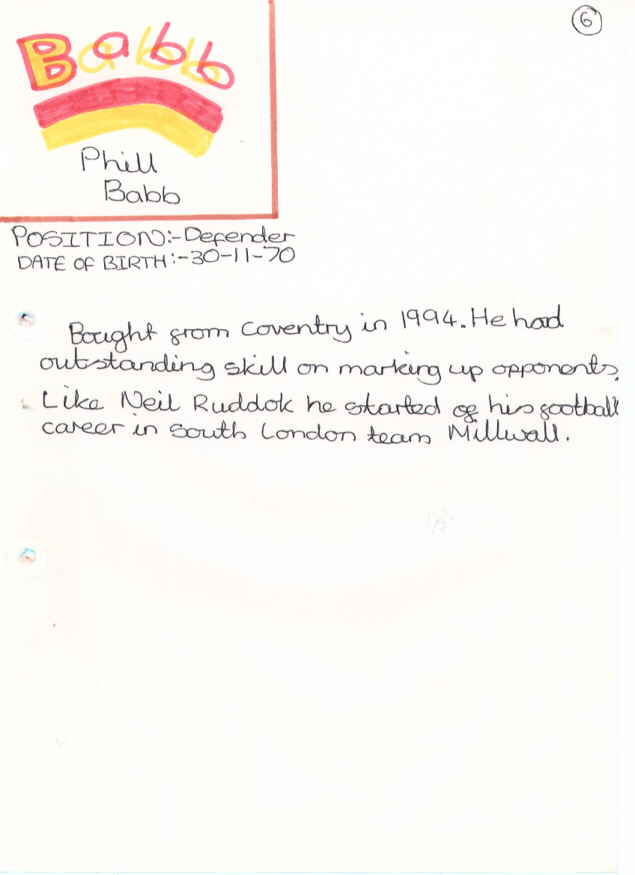 6
Babb
Phill
Babb
POSITION:-Defender
DATE OF BIRTH:-30-11-70
Bought from Coventry in 1994. He had
outstanding skill on marking up opponents.
Like Neil Ruddok he started of his football
career in South London team Millwall.